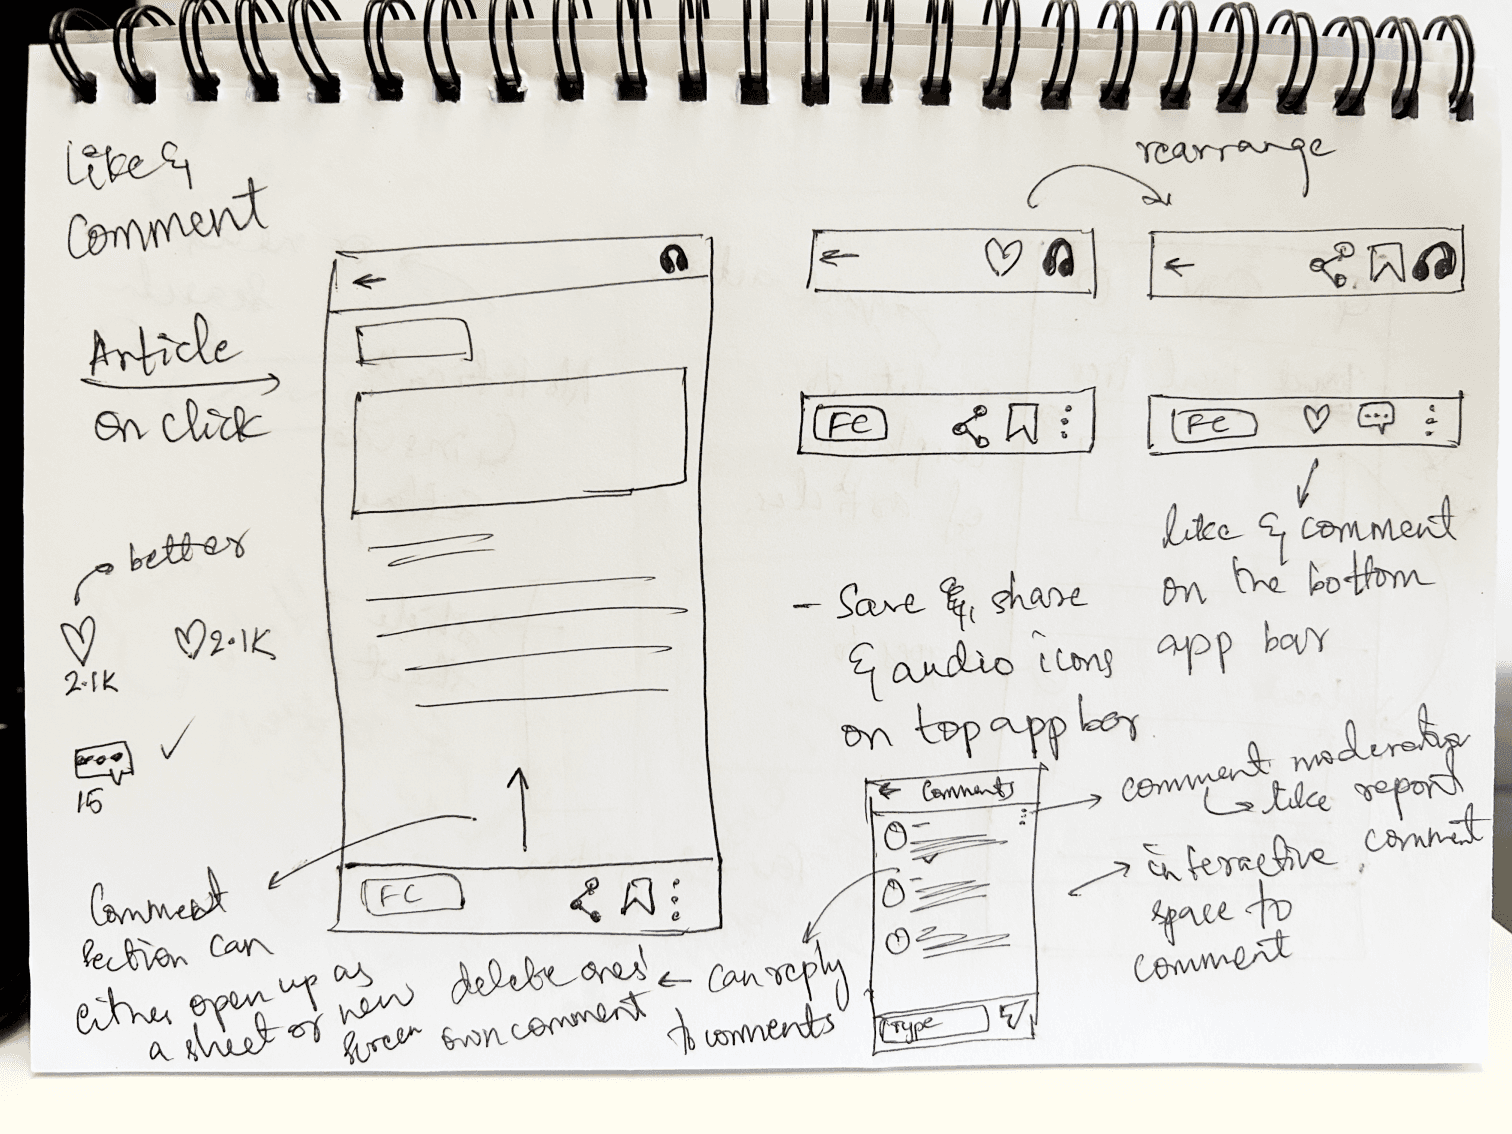 Like &
Comment
Article
on click
better
2.1K
2.1K
15
Comment
section can
either open up as
a sheet or new
screen
FC
rearrange
FC
FC
like & comment
on the bottom
app bar
- Save &, share
& audio icons
on top app bar
Comments
Type
comment moderation
like report
comment
interactive
space to
comment
can reply
to comments
delete ones'
own comment